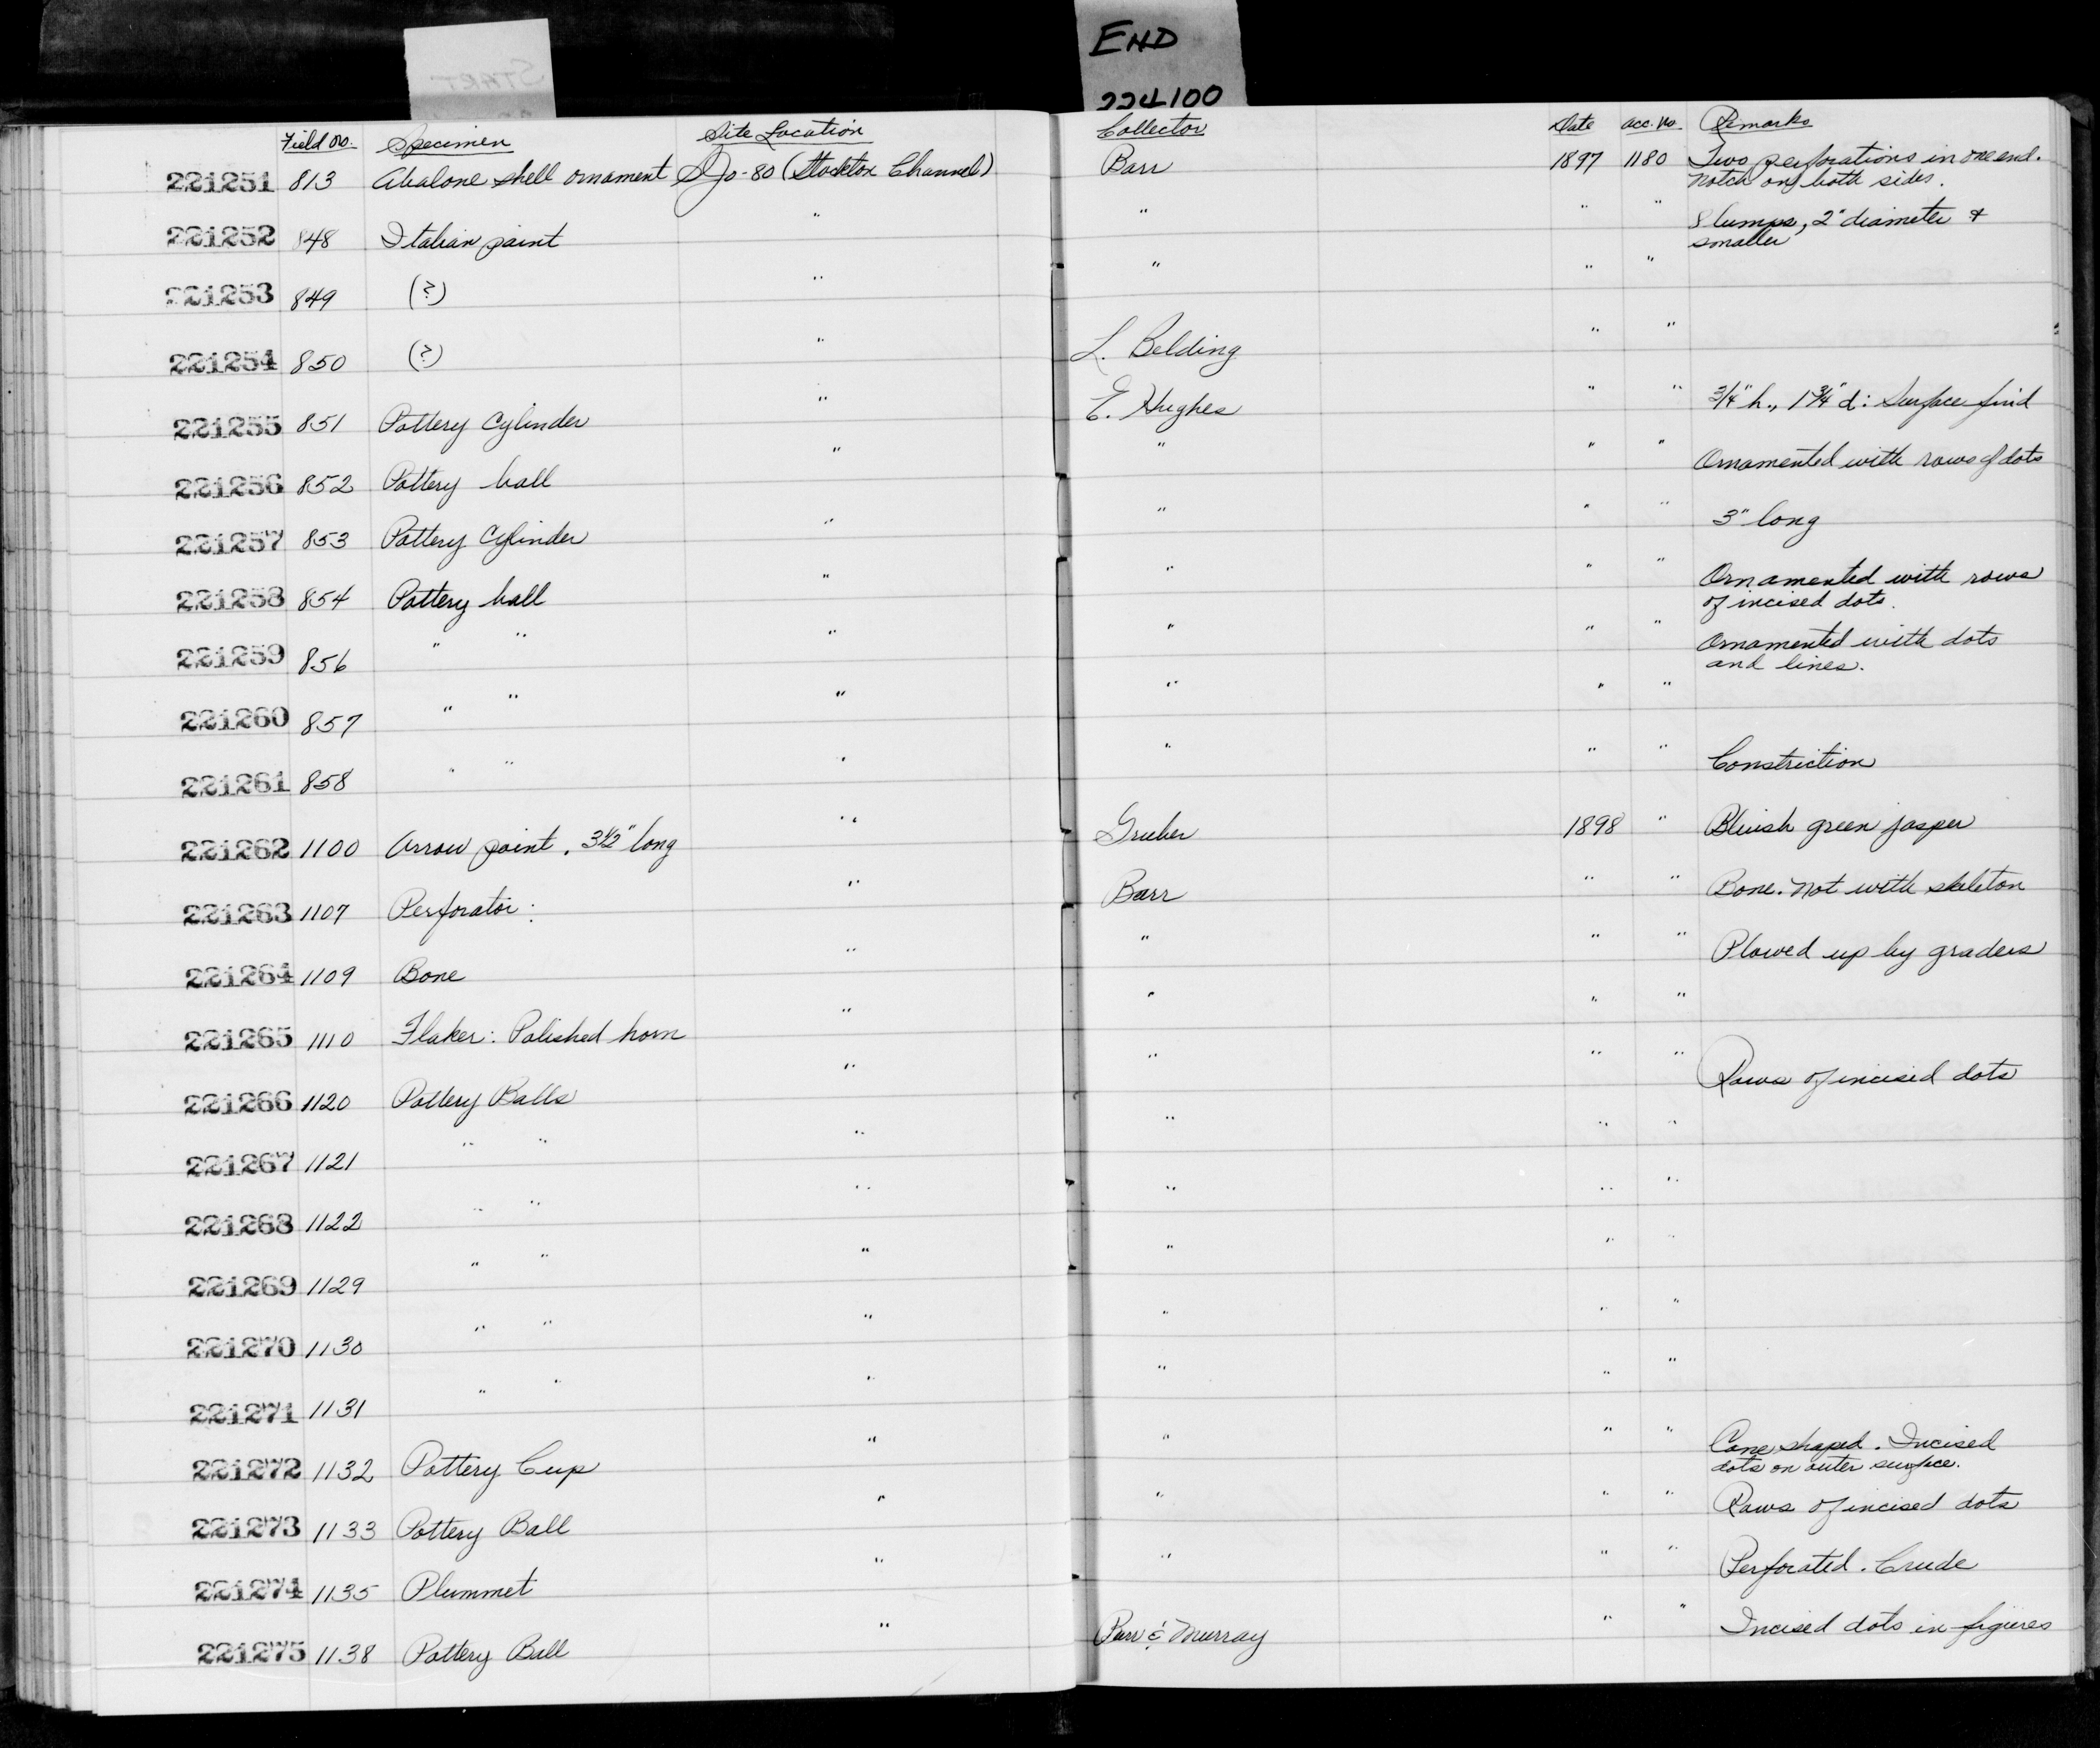 START
END
224100
Field No. Specimen Site Location Collector Date Acc. No. Remarks
221251 813 Abalone shell ornament SJo-80 (Stockton Channel) Barr 1897 1180 Two perforations in one end.
Notch on both sides.
221252 848 Italian paint " " " " 8 lumps, 2" diameter &
smaller
221253 849 (?) " " " "
221254 850 (?) " L. Belding " "
221255 851 Pottery Cylinder " E. Hughes " " 3/4" h., 1 3/4" d: Surface find
221256 852 Pottery ball " " " " Ornamented with rows of dots
221257 853 Pottery Cylinder " " " " 3" long
221258 854 Pottery ball " " " " Ornamented with rows
of incised dots.
221259 856 " " " " " " Ornamented with dots
and lines.
221260 857 " " " " " "
221261 858 " " " " " " Constriction
221262 1100 Arrow point, 3 1/2" long " Gruber 1898 " Bluish green jasper
221263 1107 Perforator: " Barr " " Bone. Not with skeleton
221264 1109 Bone " " " " Plowed up by graders
221265 1110 Flaker: Polished horn " " " "
221266 1120 Pottery Balls " " " " Rows of incised dots
221267 1121 " " " " " "
221268 1122 " " " " " "
221269 1129 " " " " " "
221270 1130 " " " " " "
221271 1131 " " " " " "
221272 1132 Pottery Cup " " " " Cone shaped. Incised
dots on outer surface.
221273 1133 Pottery Ball " " " " Rows of incised dots
221274 1135 Plummet " " " " Perforated. Crude
221275 1138 Pottery Ball " Barr & Murray " " Incised dots in figures